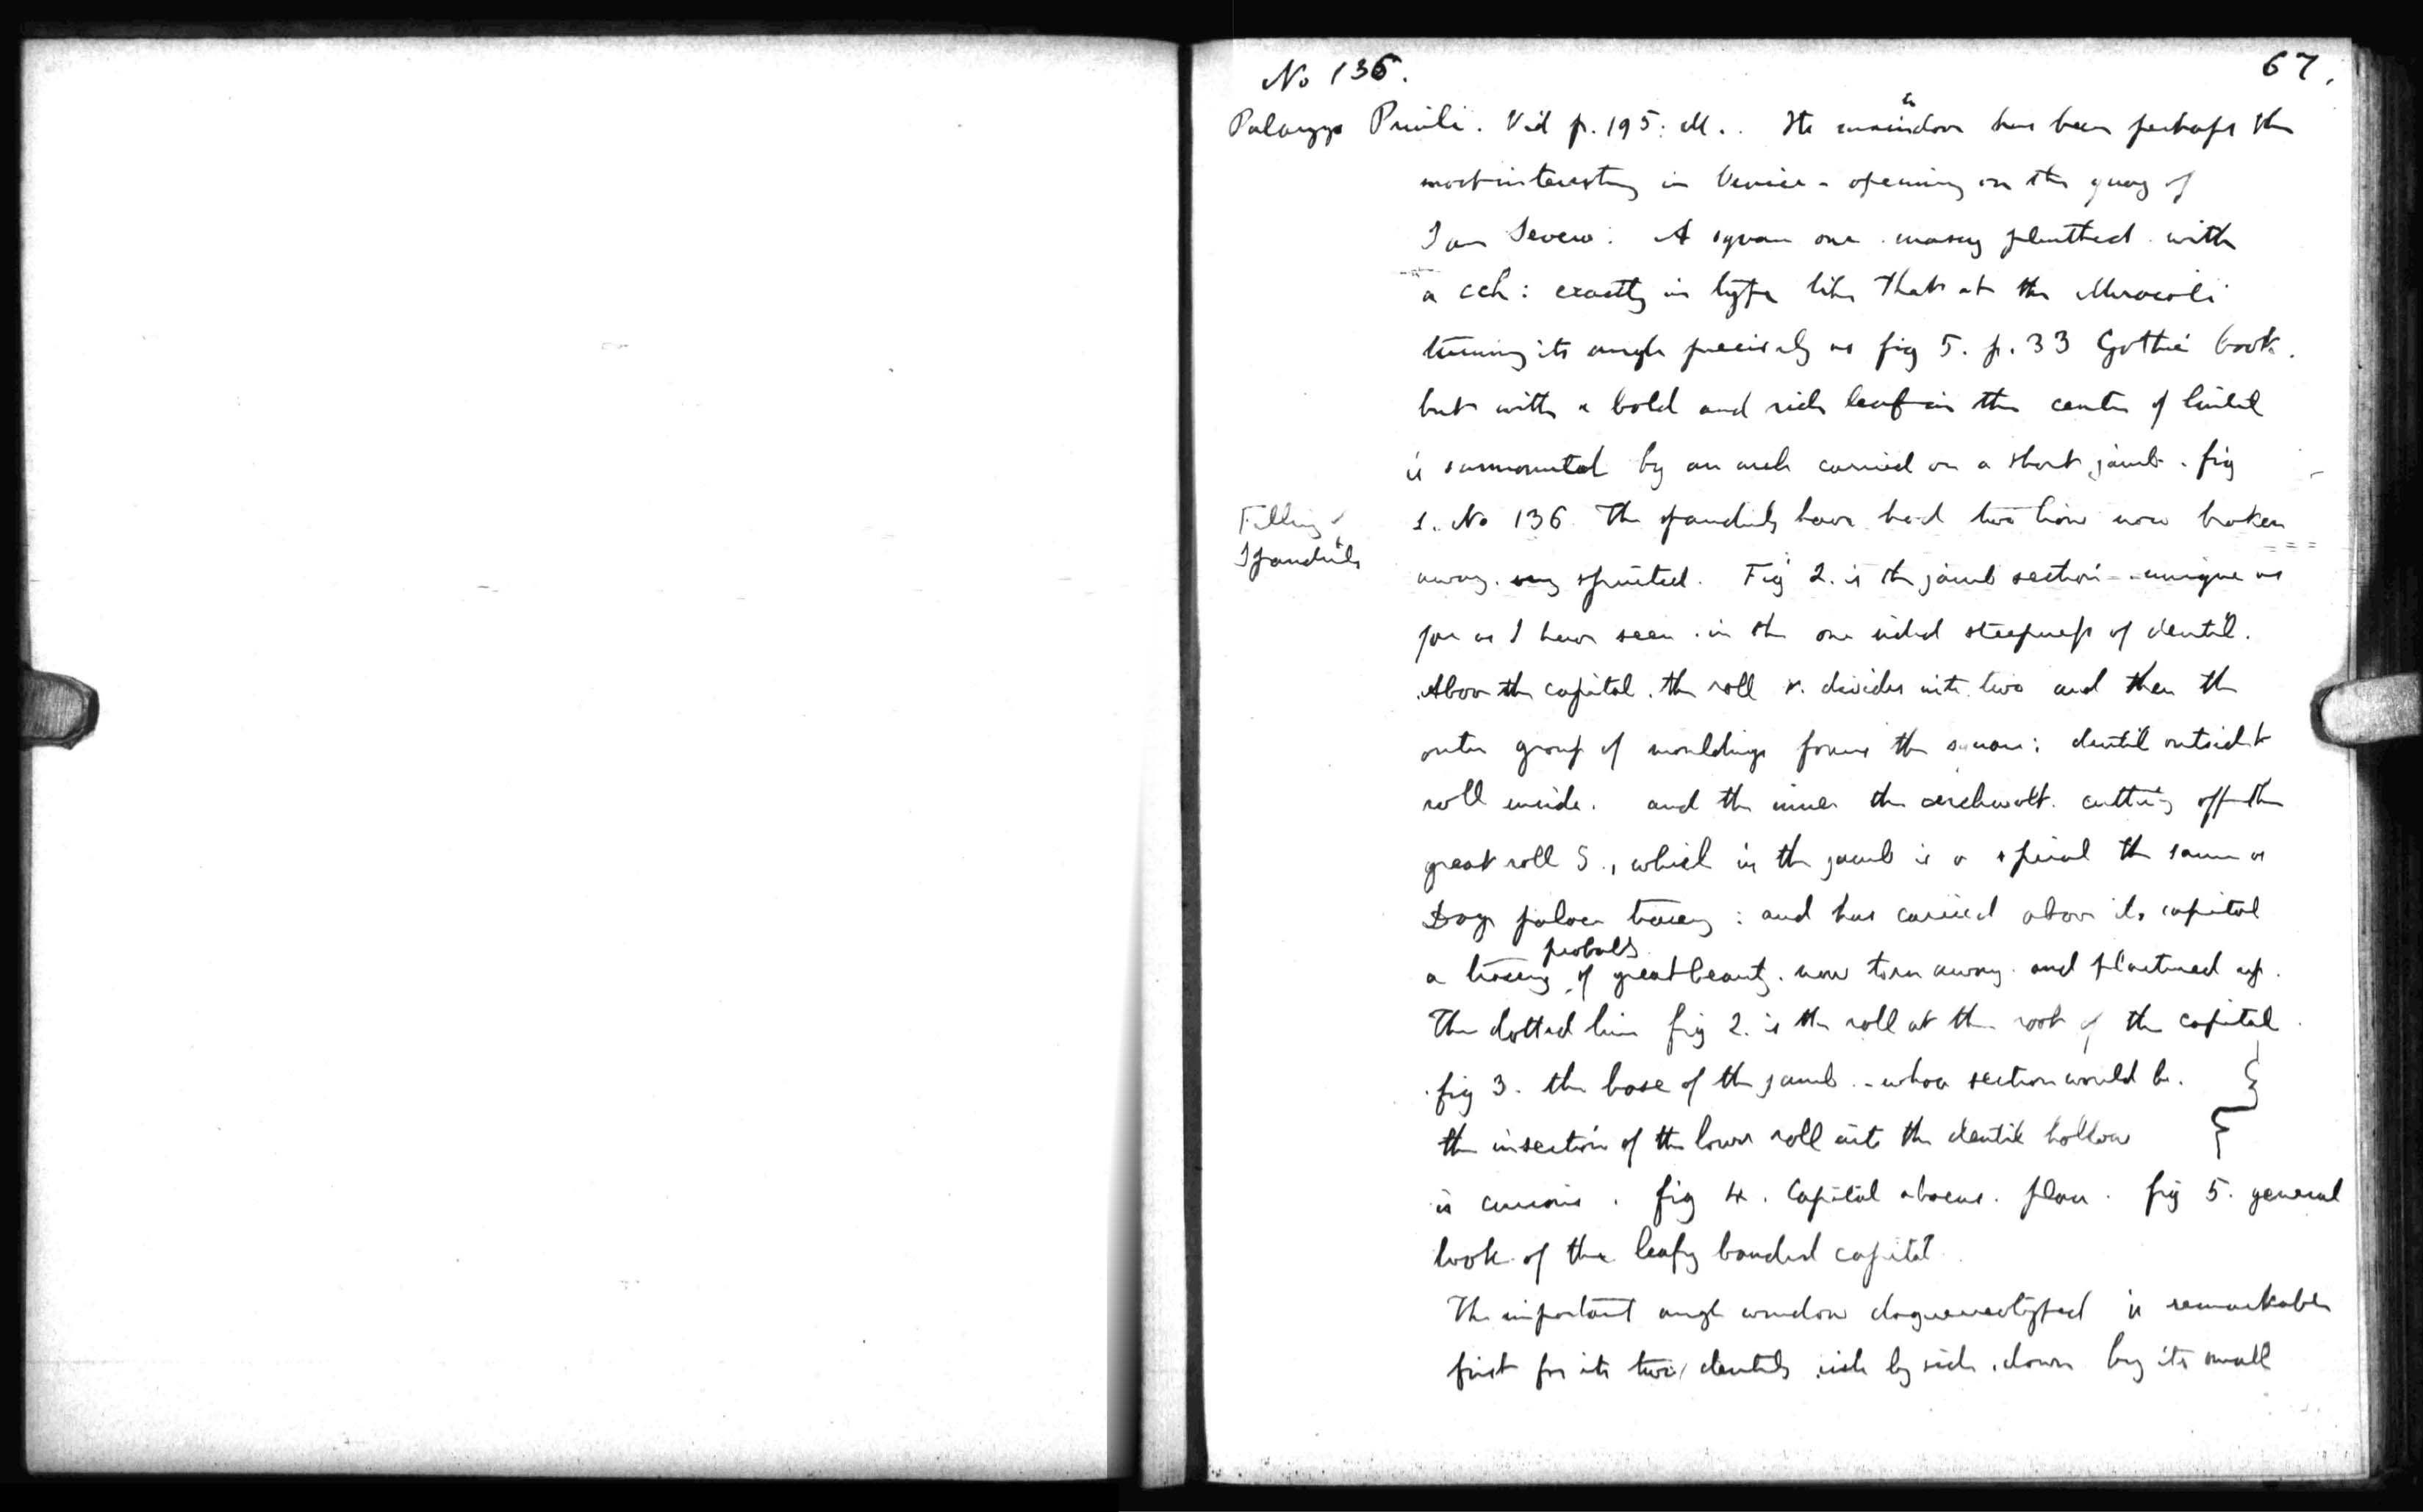 No 136.
67.
Palazzo Priuli. Vid p. 195: M.. Its main door has been perhaps the
most interesting in Venice - opening on the quay of
San Severo: A square one. massy plinthed. with
a ch: exactly in type like that at the Miracoli
turning its angle precisely as fig 5. p. 33 Gothic book.
but with a bold and rich leaf in the center of lintel
is surmounted by an arch carried on a short jamb. fig
Filling
Spandrils
1. No 136. The spandrils have had two lions now broken
away. very spirited. Fig 2. is the jamb section - unique as
far as I have seen. in the one sided steepness of dentil.
Above the capital. the roll r. divides into two and then the
outer group of mouldings forms the square: dentil outside &
roll inside. and the inner the archivolt. cutting off the
great roll S., which in the jamb is a spiral the same as
Doge palace tracery: and has carried above its capital
probably
a tracery of great beauty. now torn away. and plastered up.
The dotted line fig 2. is the roll at the root of the capital.
fig 3. the base of the jamb. - whose section would be.
the insection of the lower roll into the dentil hollow
is curious. fig 4. Capital abacus. plan. fig 5. general
look of the leafy banded capital
The important angle window daguerreotyped is remarkable
first for its two dentils side by side. down by its small